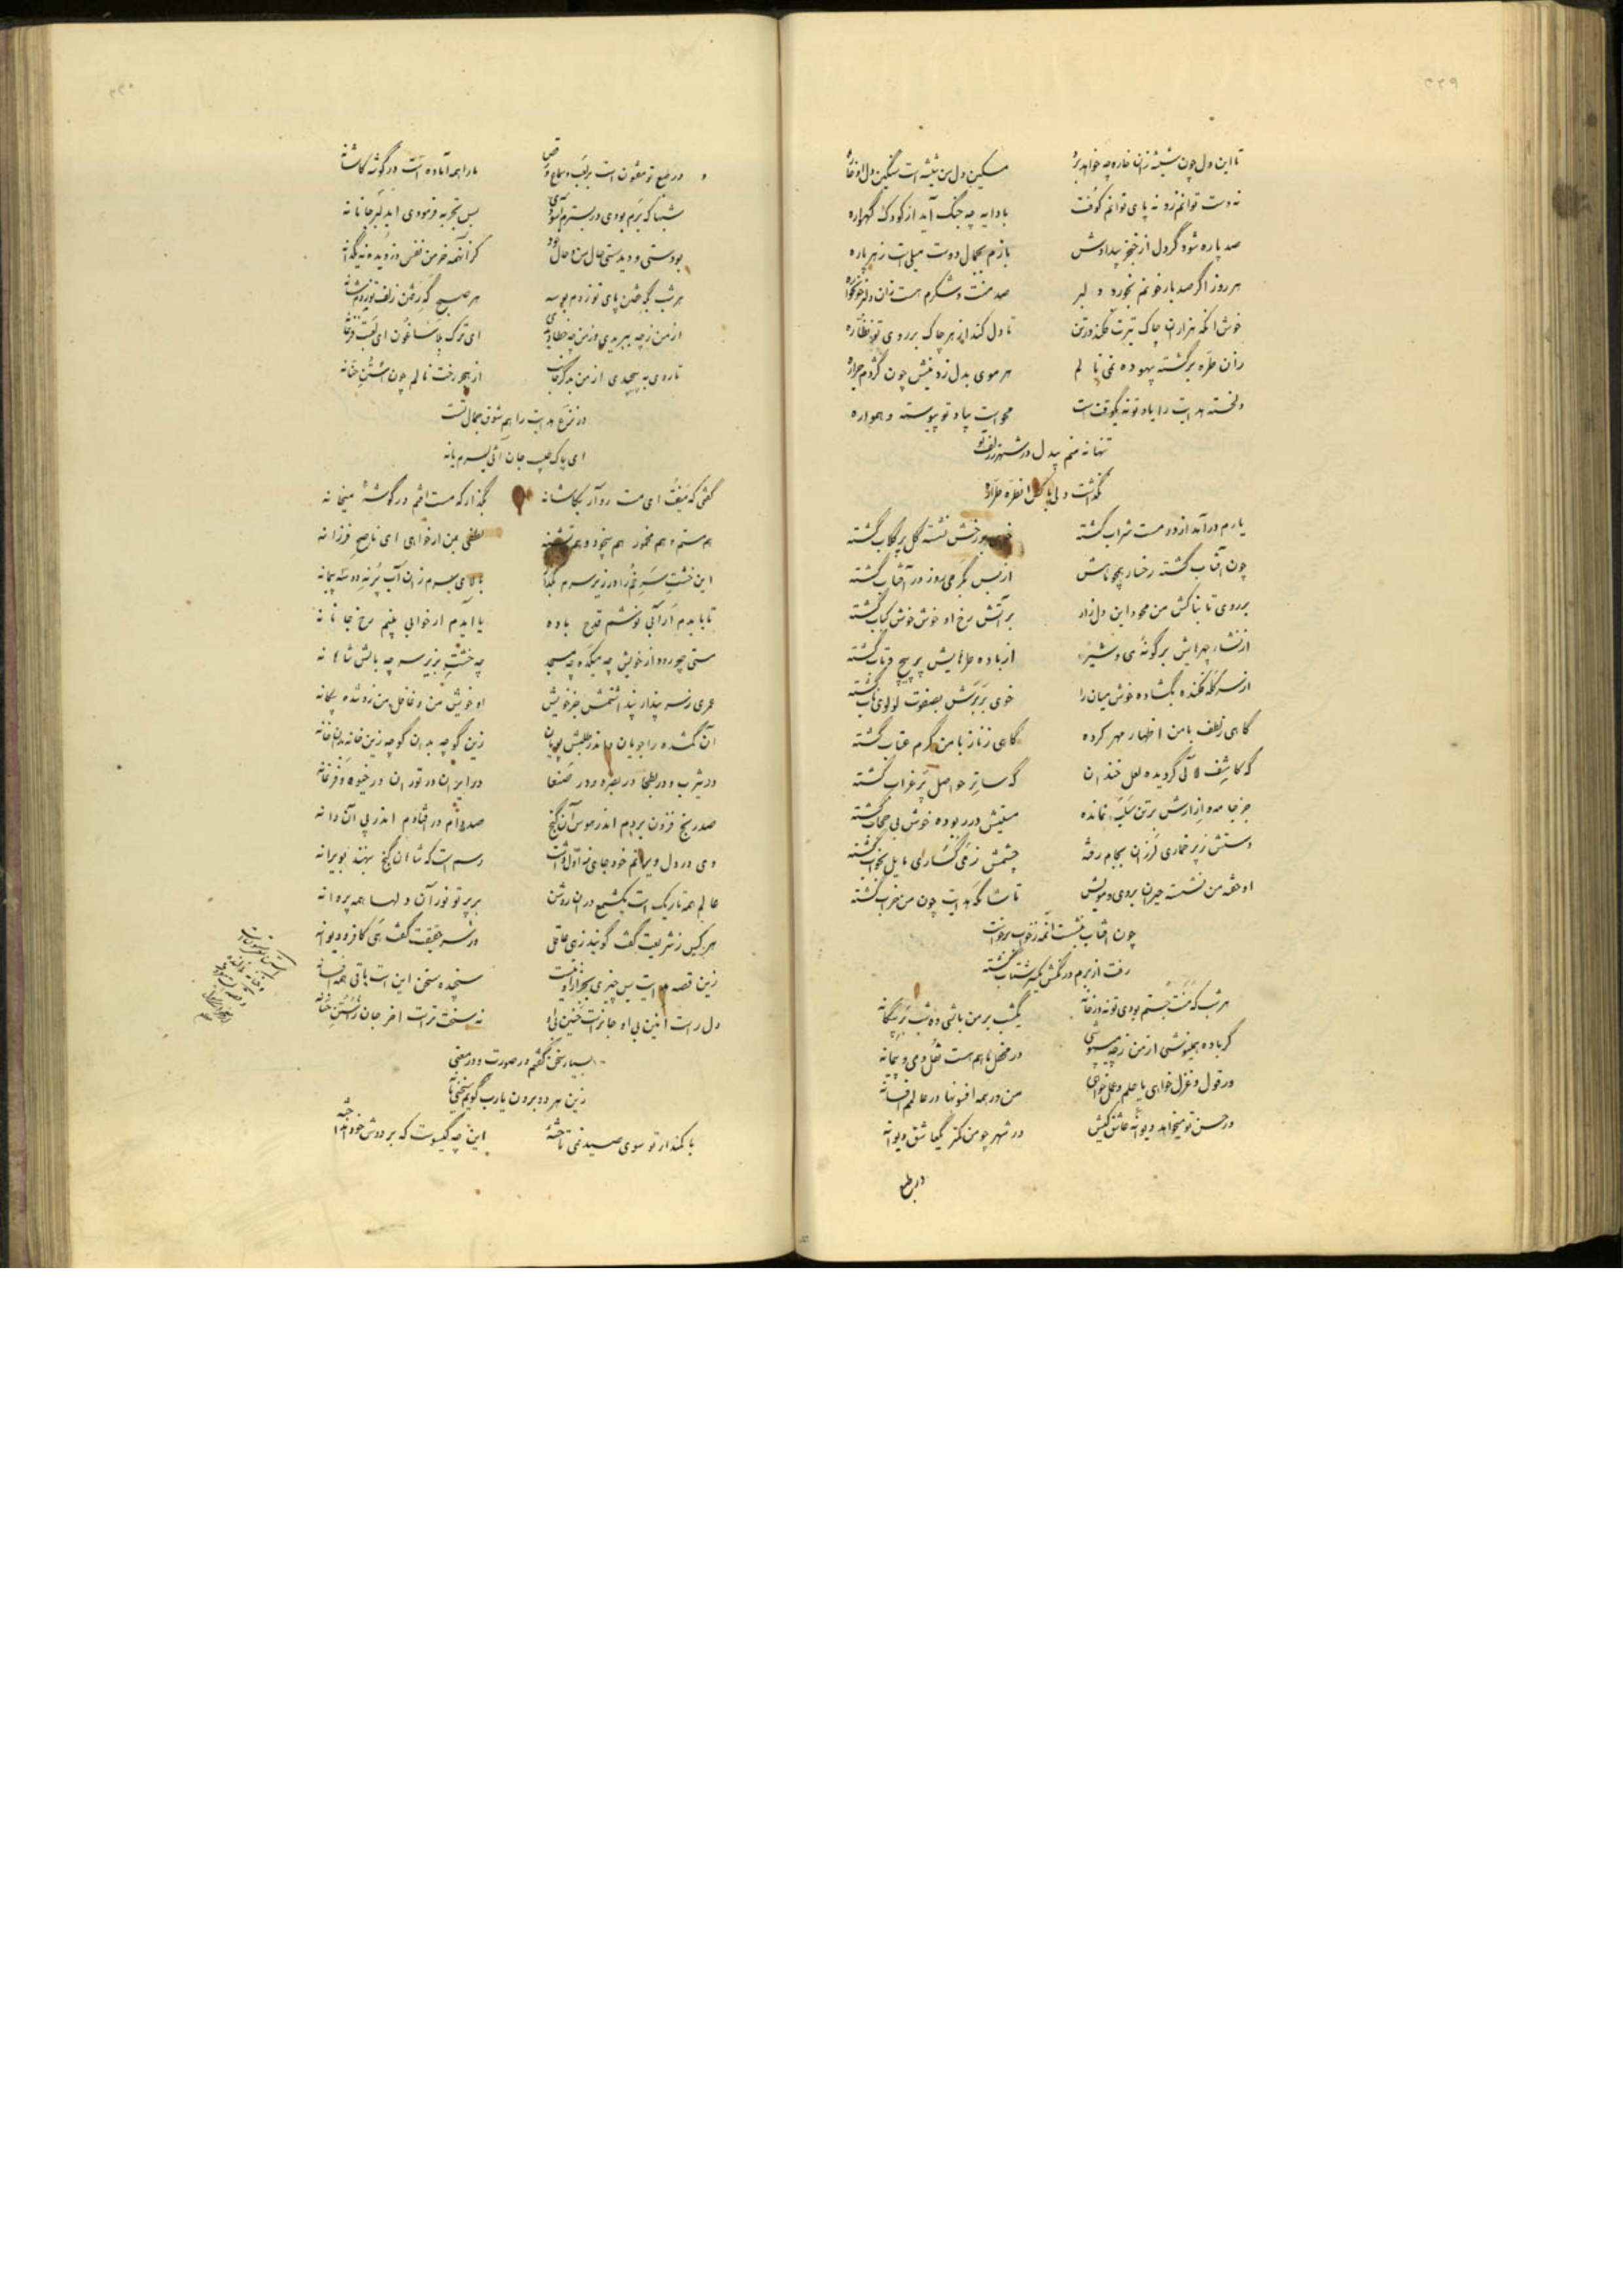 ۴۲۹
تا این دل چون شیشه زان خاره چه خواهد برد مسکین دل من شیشه است سنگین دل او خاره
نه دست توانم زد نه پای توانم کوفت با دایه چه جنگ آید از کودک گهواره
صد پاره شود گر دل از خنجر بیدادش بازم بجمال دوست میل است ز هر پاره
هر روز اگر صد بار خونم بخورد دلبر صد منت و شکرم هست زان دلبر خونخواره
خوش آنکه هزاران چاک تیرت فکند در تن تا دل کند از هر چاک بر روی تو نظاره
زان طره برگشته بیهوده نمی نالم هر موی بدل زد نیش چون گژدم جراره
دلخسته هدایت را یاد تو نه یکوقت است محو است بیاد تو پیوسته و همواره
تنها نه منم بیدل در شهر ز زلف تو
نگذاشت دلی با کس آن طره طراره
یارم درآمد از در مست شراب گشته خوی بر رخش نشسته گل پر گلاب گشته
چون آفتاب گشته رخسار همچو ماهش از بس بگرمی روز در آفتاب گشته
بر روی تابناکش من محو و این دل زار بر آتش رخ او خوش خوش کباب گشته
از باده طره‌هایش پر پیچ و تاب گشته
از سر کله فکنده بگشاده خوش میان را خوی بر برش بصفوت لولوی ناب گشته
گاهی ز لطف با من اظهار مهر کرده گاهی ز ناز با من گرم عتاب گشته
گه کاشف لآلی گردیده لعل خندان گه ساتر حواصل پر غراب گشته
جز جامه و ازارش بر تن سلب نمانده مستیش در ربوده خوش بی حجاب گشته
دستش ز پر خماری لرزان بجام رفته چشمش ز می گساری مایل بخواب گشته
او خفته من نشسته حیران بروی و مویش تا شامگه هدایت چون من خراب گشته
چون آفتاب بنشست آنمه ز خواب برخاست
رفت از برم در نگش یکسر شتاب گشته
هر شب که منت جستم بودی تو نه در خانه یکشب بر من باشی ده شب بر بیگانه
گر باده همینوشی از من ز چه میپوشی در محفل ما هم هست نقل و می و پیمانه
ور قول و غزل خواهی یا علم و عمل خواهی من در همه افنونها در عالمم افسانه
ور حسن تو میخواهد دیوانه عاشق کیش در شهر چو من کمتر یک عاشق دیوانه
در طبع
۴۳۰
ور طبع تو مفتون است بر لعب و سماع و رقص ما را همه آماده است در گوشه کاشانه
شبها که برم بودی در بسترم آسودی بس تجربه فرمودی ای دلبر جانانه
بودستی و دیدستی حال من و حال خود کز آنهمه خرمن نفس دزدیده نه یکدانه
هر شب بگه خفتن پای تو زدم بوسه هر صبح گه رفتن زلف تو زدم شانه
از من ز چه ببریدی وز من چه خطا دیدی ای ترک بلاساغون ای لعبت فرغانه
تا روی بپیچیدی از من بدگر جانب از هجر رخت نالم چون استن حنانه
در نزع هدایت را هم شوق جمال تست
ای پاک طلب جان آئی بسرم یا نه
گفتی که میفت ای مست رو آر بکاشانه بگذار که مست افتم در گوشه میخانه
هم مستم و هم مخمور هم بیخود و هم تشنه لطفی بمن ار خواهی ای ناصح فرزانه
این خشت سر خم را در زیر سرم بگذار بالای سرم زان آب پر نه دو سه پیمانه
تا یابدم ار آبی نوشم قدح باده یا آیدم ار خوابی بینم رخ جانانه
مستی چو رود از خویش چه میکده چه مسجد چه خشت بزیر سر چه بالش شاهانه
عمری ز سر پندار پنداشتمش جز خویش او خویش من و غافل من زو شده بیگانه
آن گمشده را جویان ماندر طلبش پویان زین کوچه بدان کوچه زین خانه بدان خانه
در یثرب و در بطحا در بصره و در صنعا در ایران در توران در خیوه و فرغانه
صد رنج فزون بردم اندر هوس آن گنج صد دام در افتادم اندر پی آن دانه
وی در دل ویرانم خود جای ز اول داشت رسم است که شاهان گنج بنهند بویرانه
عالم همه تاریک است یکشمع در آن روشن بر پرتو نور آن دلها همه پروانه
هر کس ز شریعت گفت گویند زهی عاقل ور سر حقیقت گفت هی کافر و دیوانه
زین قصه هدایت بس چیزی بجز او نیست سنجیده سخن این است باقی همه افسانه
دل راست انین بی او جانراست حنین بی او نه سخت تر است آخر جان ز استن حنانه
بسیار سخن گفتم در صورت و در معنی
زین هر دو برون یارب گویم سخنی یا نه
با کمند ار تو سوی صید نمی تاخته این چه گیسوست که بر دوش خود انداخته